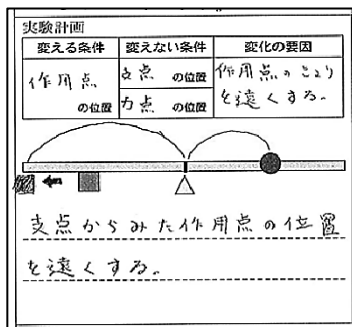 実験計画
変える条件 変えない条件 変化の要因
作用点 の位置
支点 の位置
力点 の位置
作用点のきょり
を遠くする。
支点からみた作用点の位置
を遠くする。